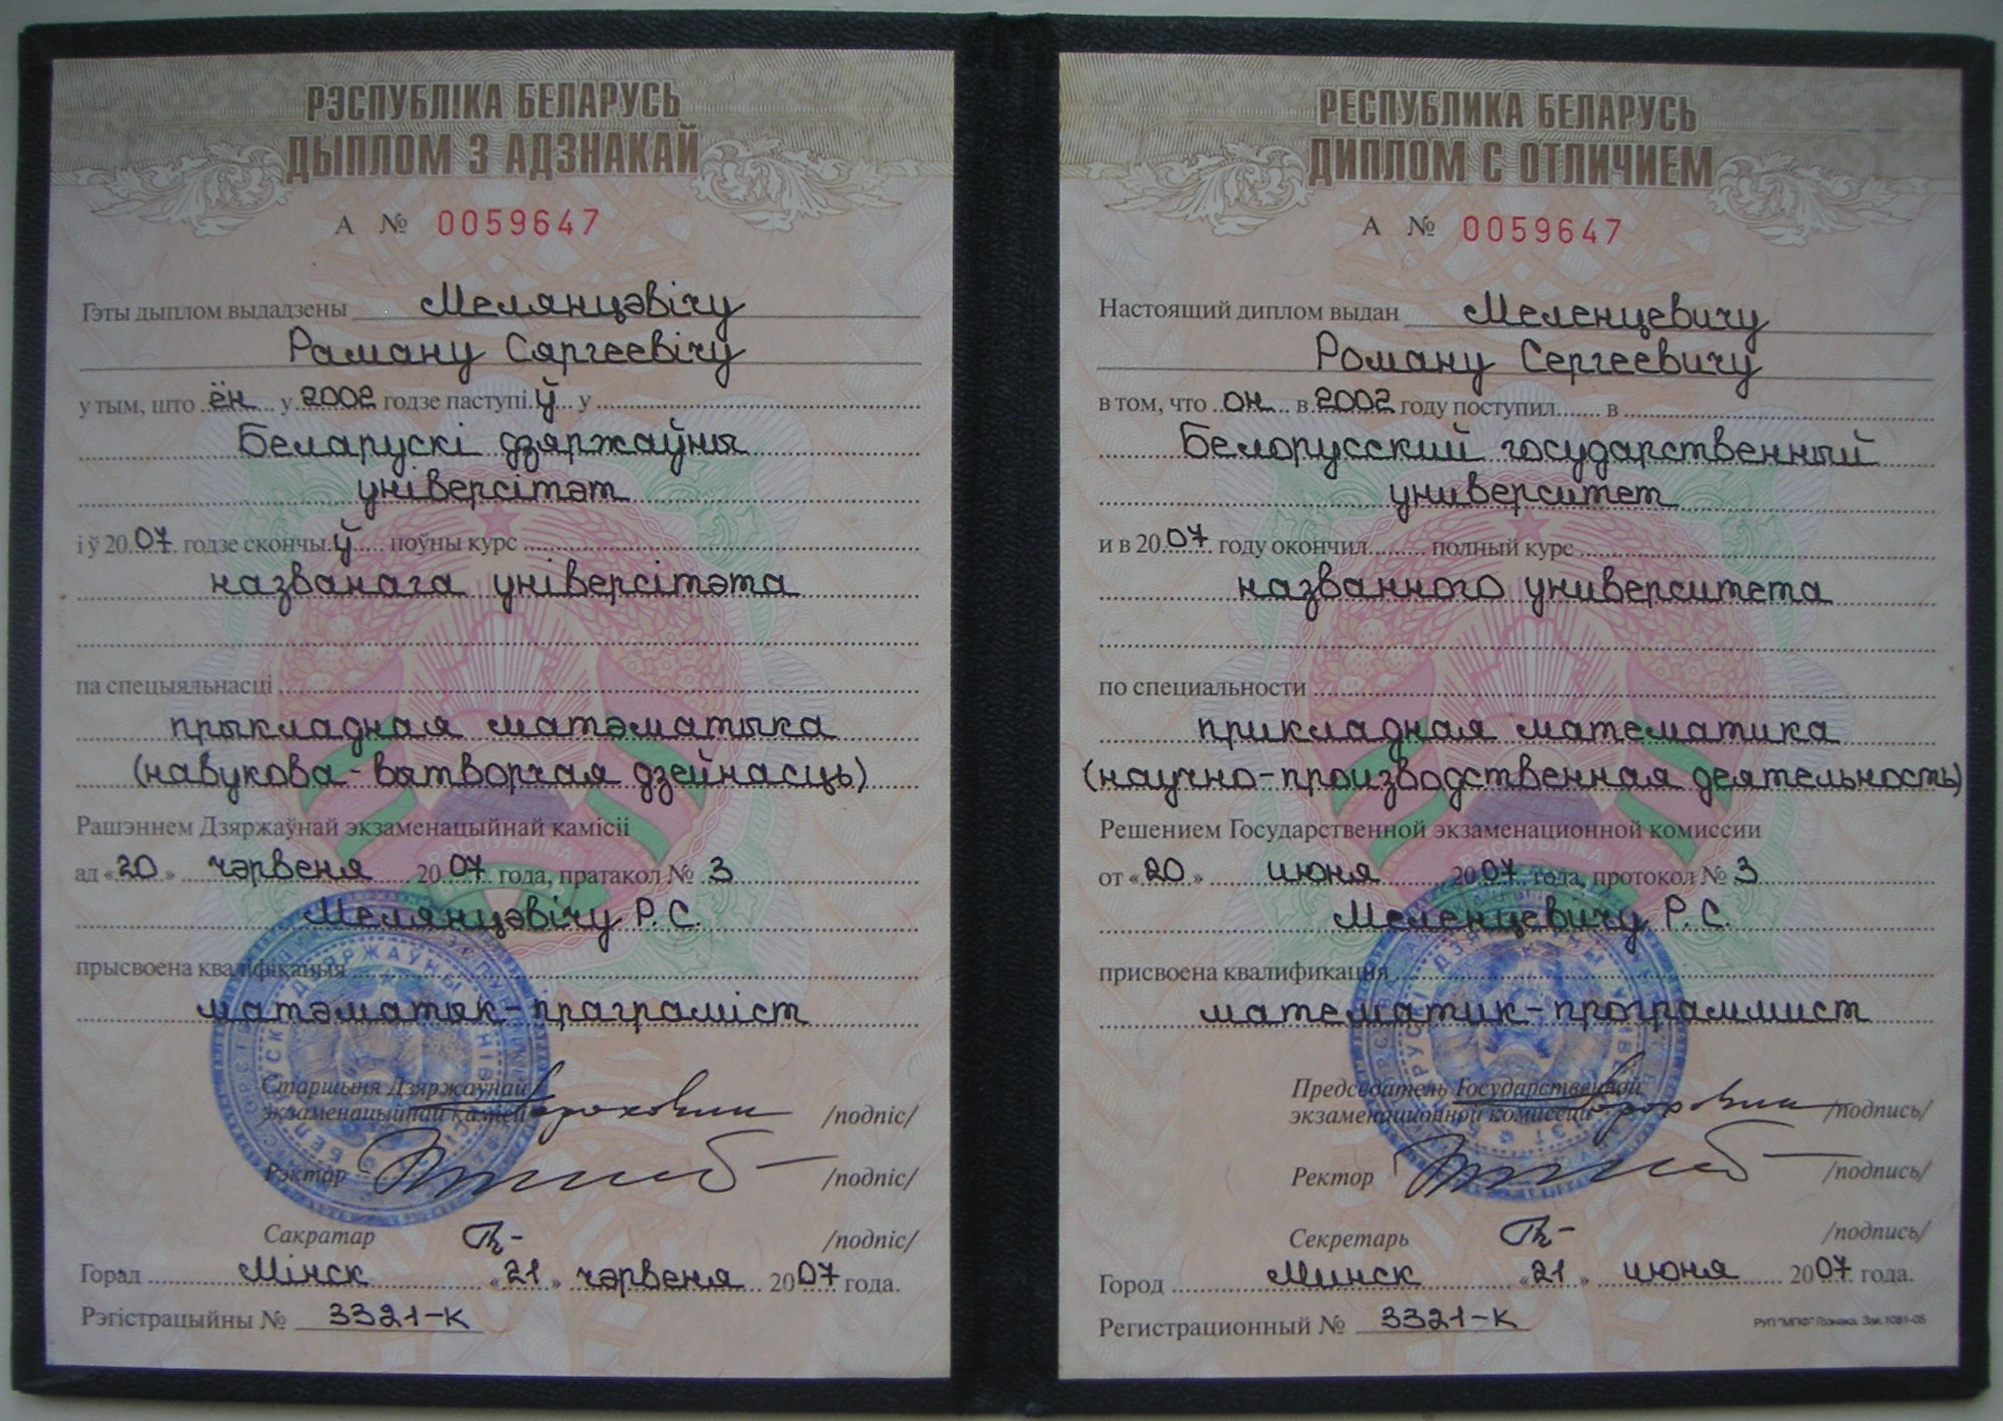 РЭСПУБЛІКА БЕЛАРУСЬ
ДЫПЛОМ З АДЗНАКАЙ
А № 0059647
Гэты дыплом выдадзены Мелянцэвічу
Раману Сяргеевічу
у тым, што ён у 2002 годзе паступіў у
Беларускі дзяржаўны
універсітэт
і ў 2007 годзе скончыў поўны курс
названага універсітэта
па спецыяльнасці
прыкладная матэматыка
(навукова-вытворчая дзейнасць)
Рашэннем Дзяржаўнай экзаменацыйнай камісіі
ад «20» чэрвеня 2007 года, пратакол № 3
Мелянцэвічу Р.С.
прысвоена кваліфікацыя
матэматык-праграміст
Старшыня Дзяржаўнай
экзаменацыйнай камісіі /подпіс/
Рэктар /подпіс/
Сакратар /подпіс/
Горад Мінск «21» чэрвеня 2007 года.
Рэгістрацыйны № 3321-К
РЕСПУБЛИКА БЕЛАРУСЬ
ДИПЛОМ С ОТЛИЧИЕМ
А № 0059647
Настоящий диплом выдан Меленцевичу
Роману Сергеевичу
в том, что он в 2002 году поступил в
Белорусский государственный
университет
и в 2007 году окончил полный курс
названного университета
по специальности
прикладная математика
(научно-производственная деятельность)
Решением Государственной экзаменационной комиссии
от «20» июня 2007 года, протокол № 3
Меленцевичу Р.С.
присвоена квалификация
математик-программист
Председатель Государственной
экзаменационной комиссии /подпись/
Ректор /подпись/
Секретарь /подпись/
Город Минск «21» июня 2007 года.
Регистрационный № 3321-К
РУП "МПФ" Гознака. Зак. 1081-05